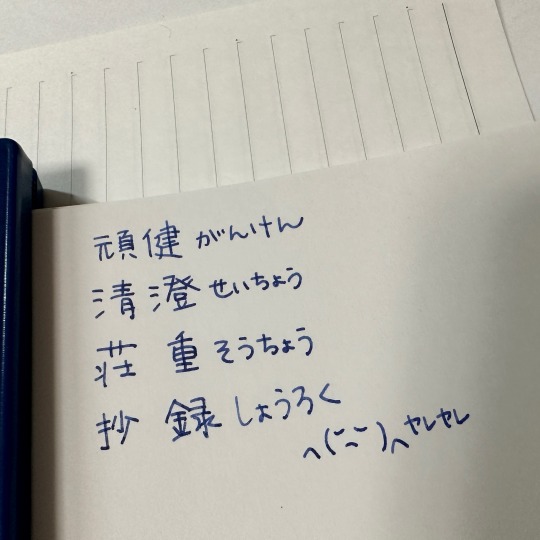 頑健 がんけん
清澄 せいちょう
荘重 そうちょう
抄録 しょうろく
ヘ(´ー`)ヘ ヤレヤレ